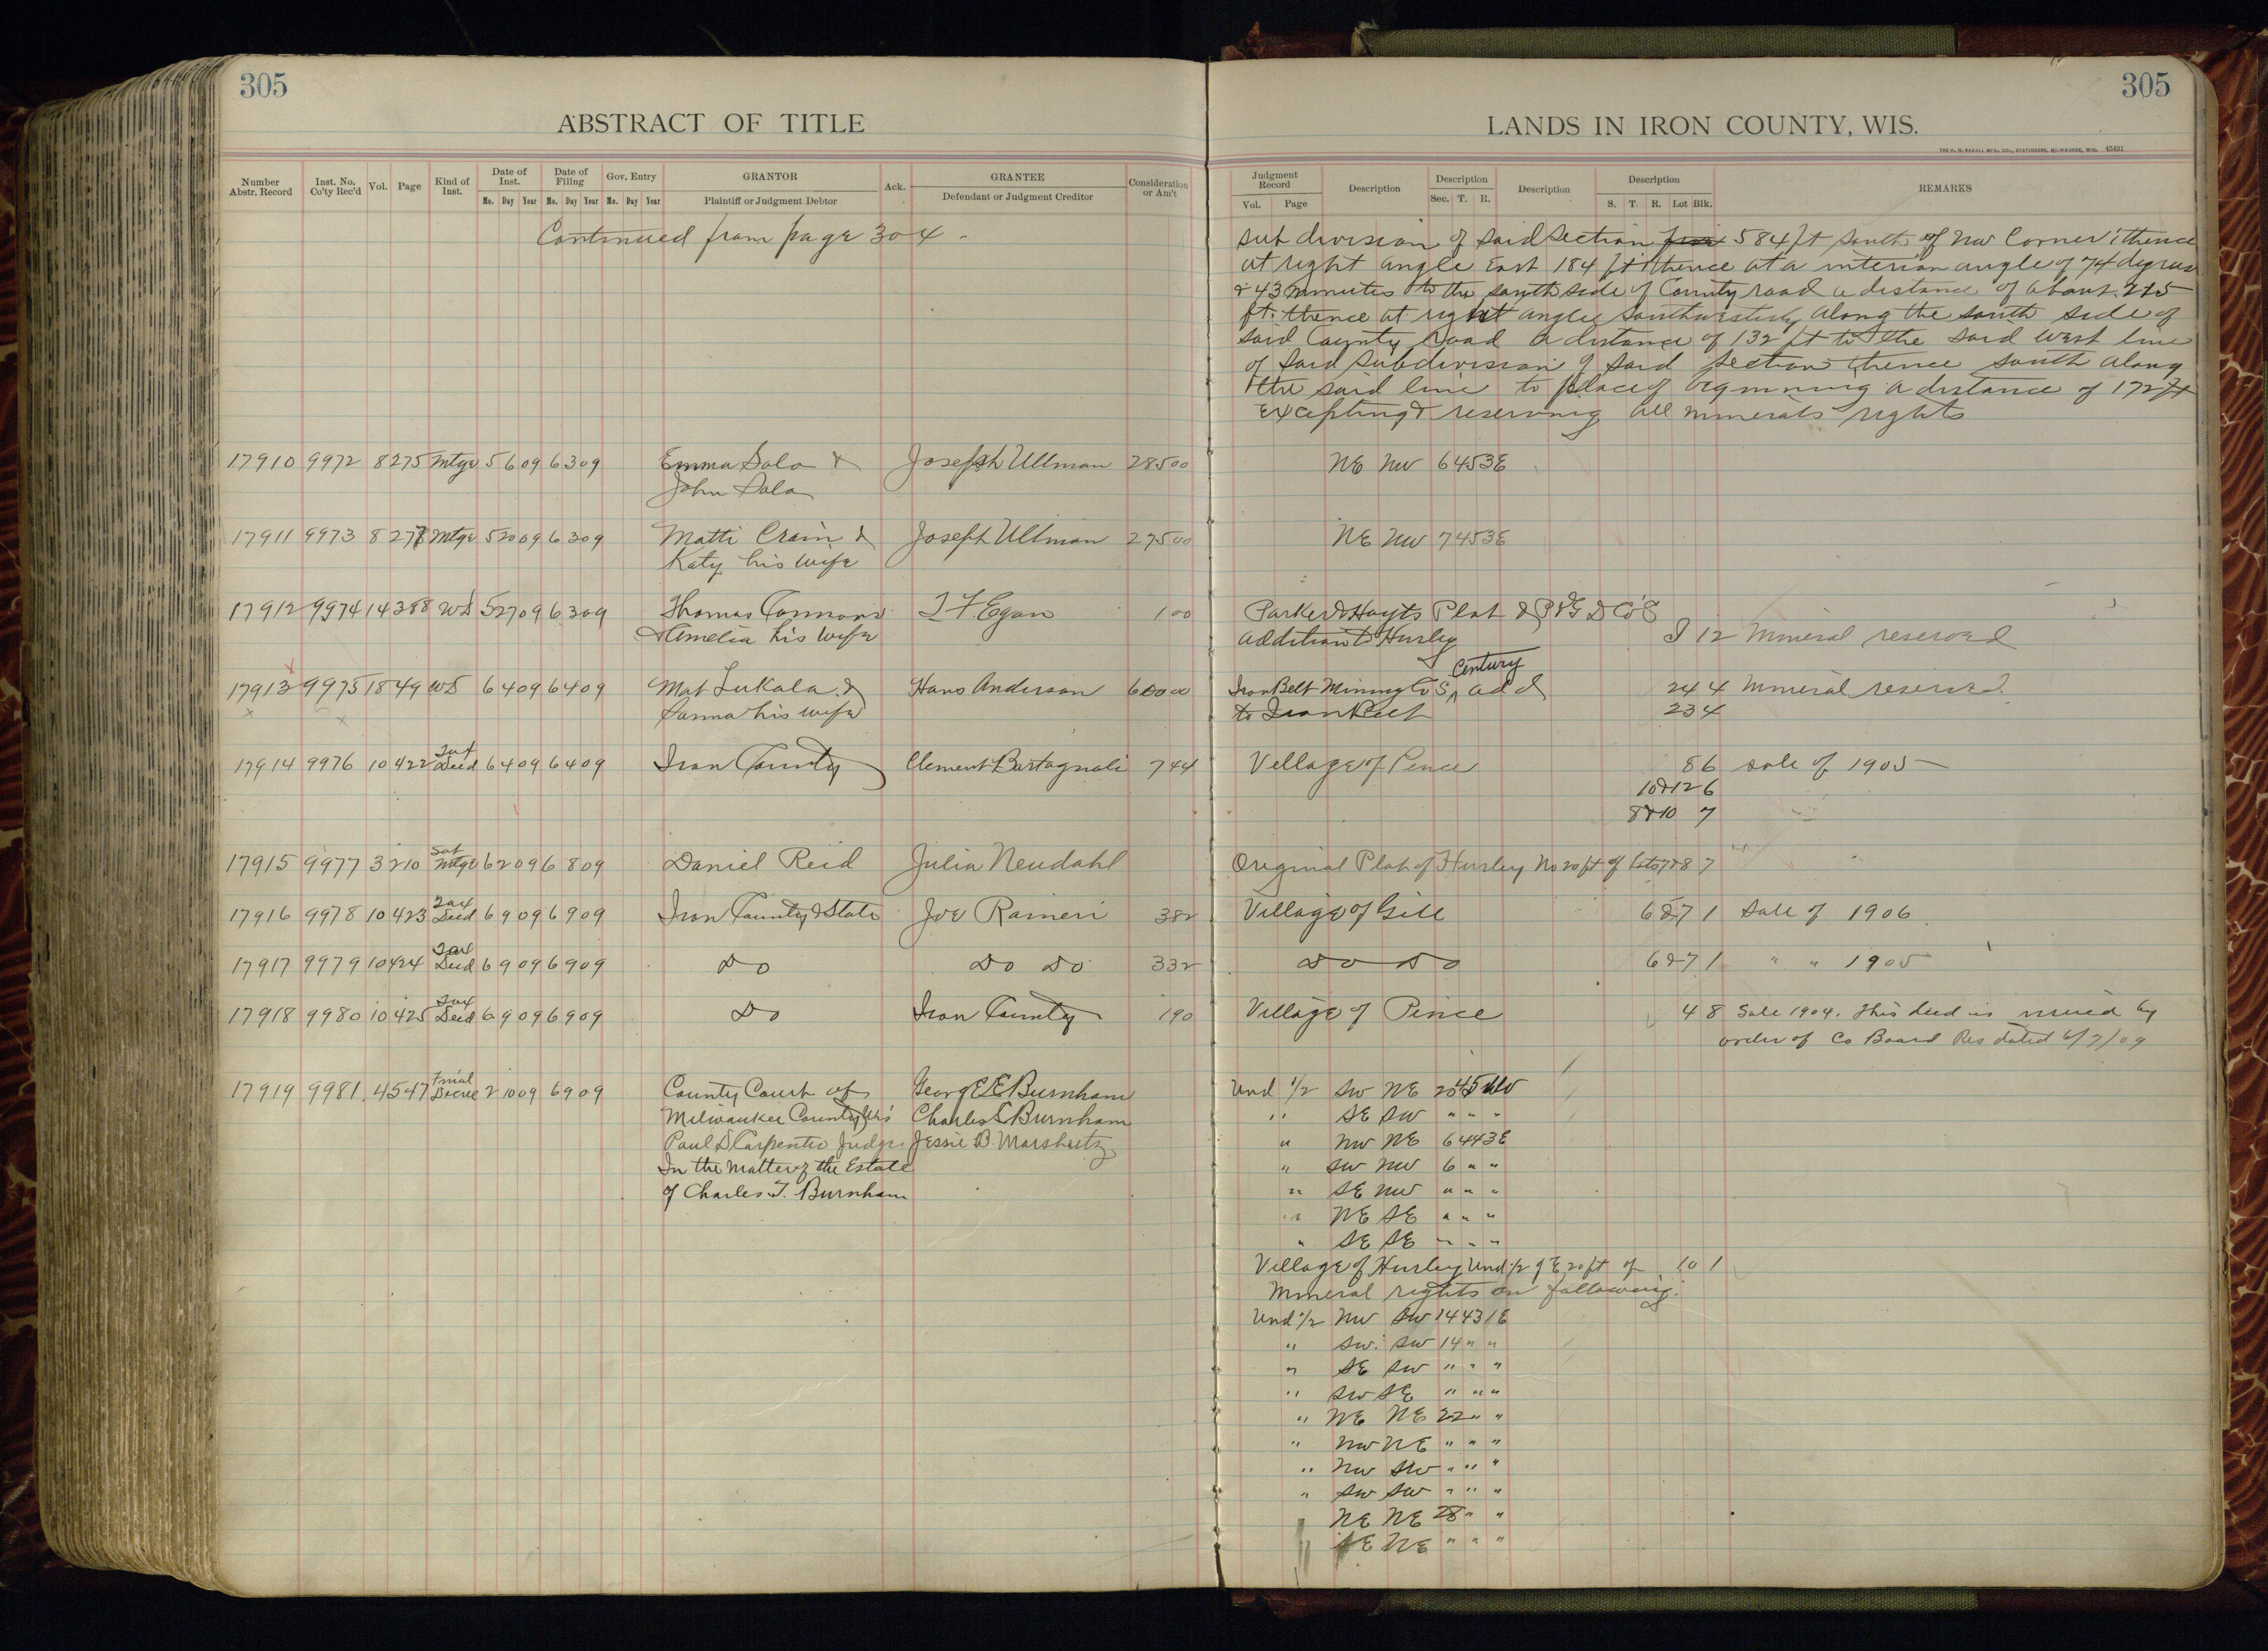 305
305
ABSTRACT OF TITLE
LANDS IN IRON COUNTY, WIS.
THE H. G. RAZALL MFG. CO., STATIONERS, MILWAUKEE, WIS. 45431
Number Abstr. Record | Inst. No. Co'ty Rec'd | Vol. | Page | Kind of Inst. | Date of Inst. Mo. Day Year | Date of Filing Mo. Day Year | Gov. Entry Mo. Day Year | GRANTOR Plaintiff or Judgment Debtor | Ack. | GRANTEE Defendant or Judgment Creditor | Consideration or Am't
Judgment Record Vol. Page | Description | Description Sec. T. R. | Description | Description S. T. R. Lot Blk. | REMARKS
Continued from page 304 -
sub division of said section 584 ft south of NW Corner; thence
at right angle East 184 ft thence at a interior angle of 74 degrees
& 43 minutes to the south side of County road a distance of about 215
ft. thence at right angles southwesterly along the south side of
said County road a distance of 132 ft to the said west line
of said subdivision of said section thence south along
the said line to place of beginning a distance of 172 ft
excepting & reserving all minerals rights
17910 9972 8 275 Mtge 5 6 09 6 3 09 Emma Salo & Joseph Ullman 285 00 NE NW 6 45 3E
John Salo
17911 9973 8 277 Mtge 5 20 09 6 3 09 Matti Crain & Joseph Ullman 275 00 NE NW 7 45 3E
Katy his wife
17912 9974 14 388 WD 5 27 09 6 3 09 Thomas Connors T F Egan 1 00 Parker & Hoyts Plat & P & G D Co's
& Amelia his wife addition to Hurley I 12 Mineral reserved
17913 9975 18 49 WD 6 4 09 6 4 09 Mat Lukala & Hans Anderson 600 00 Iron Belt Mining Co's Century add 24 4 Mineral reserved
Sanna his wife to Iron Belt 23 4
17914 9976 10 422 Tax Deed 6 4 09 6 4 09 Iron County Clement Bertagnoli 7 44 Village of Pence 8 6 sale of 1905
10 & 12 6
8 & 10 7
17915 9977 3 210 Sat Mtge 6 2 09 6 8 09 Daniel Reid Julia Neudahl Original Plat of Hurley No 20 ft of Lots 7 & 8 7
17916 9978 10 423 Tax Deed 6 9 09 6 9 09 Iron County & State Joe Raineri 3 82 Village of Gile 6 & 7 1 Sale of 1906
17917 9979 10 424 Tax Deed 6 9 09 6 9 09 Do Do Do 3 32 Do Do 6 & 7 1 " " 1905
17918 9980 10 425 Tax Deed 6 9 09 6 9 09 Do Iron County 1 90 Village of Pence 4 8 Sale 1904. This deed is issued by
order of Co Board Res dated 6/7/09
17919 9981 4 547 Final Decree 2 10 09 6 9 09 County Court of George E Burnham Und 1/2 SW NE 20 45
Milwaukee County Wis Charles L Burnham " SE SW " " "
Paul D Carpenter Judge Jessie B. " NW NE 6 44 3E
In the Matter of the Estate " SW NW 6 " "
of Charles T. Burnham " SE NW " " "
" NE SE " " "
" SE SE " " "
Village of Hurley Und 1/2 of E 20 ft of 10 1
Mineral rights on following:
Und 1/2 NW SW 14 43 1E
" SW SW 14 " "
" SE SW " " "
" SW SE " " "
" NE NE 22 " "
" NW NE " " "
" NW SW " " "
" SW SW " " "
" NE NE 28 " "
" SE NE " " "